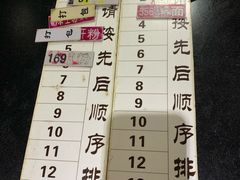 打包
打包
干粉
请按先后顺序排
5
169
7
8
9
10
11
12
356
请按先后顺序排
4
5
6
7
8
9
10
11
12